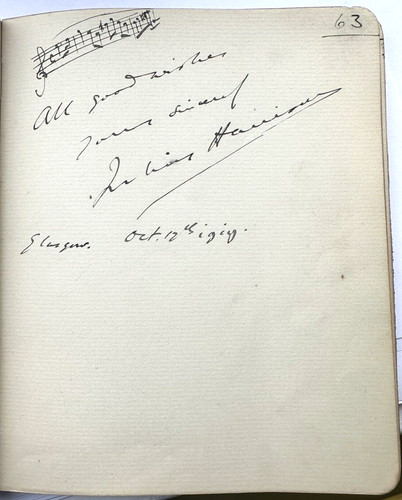 63
All good wishes
yours sincerely
Julius Harrison
Glasgow. Oct. 17th 1919.